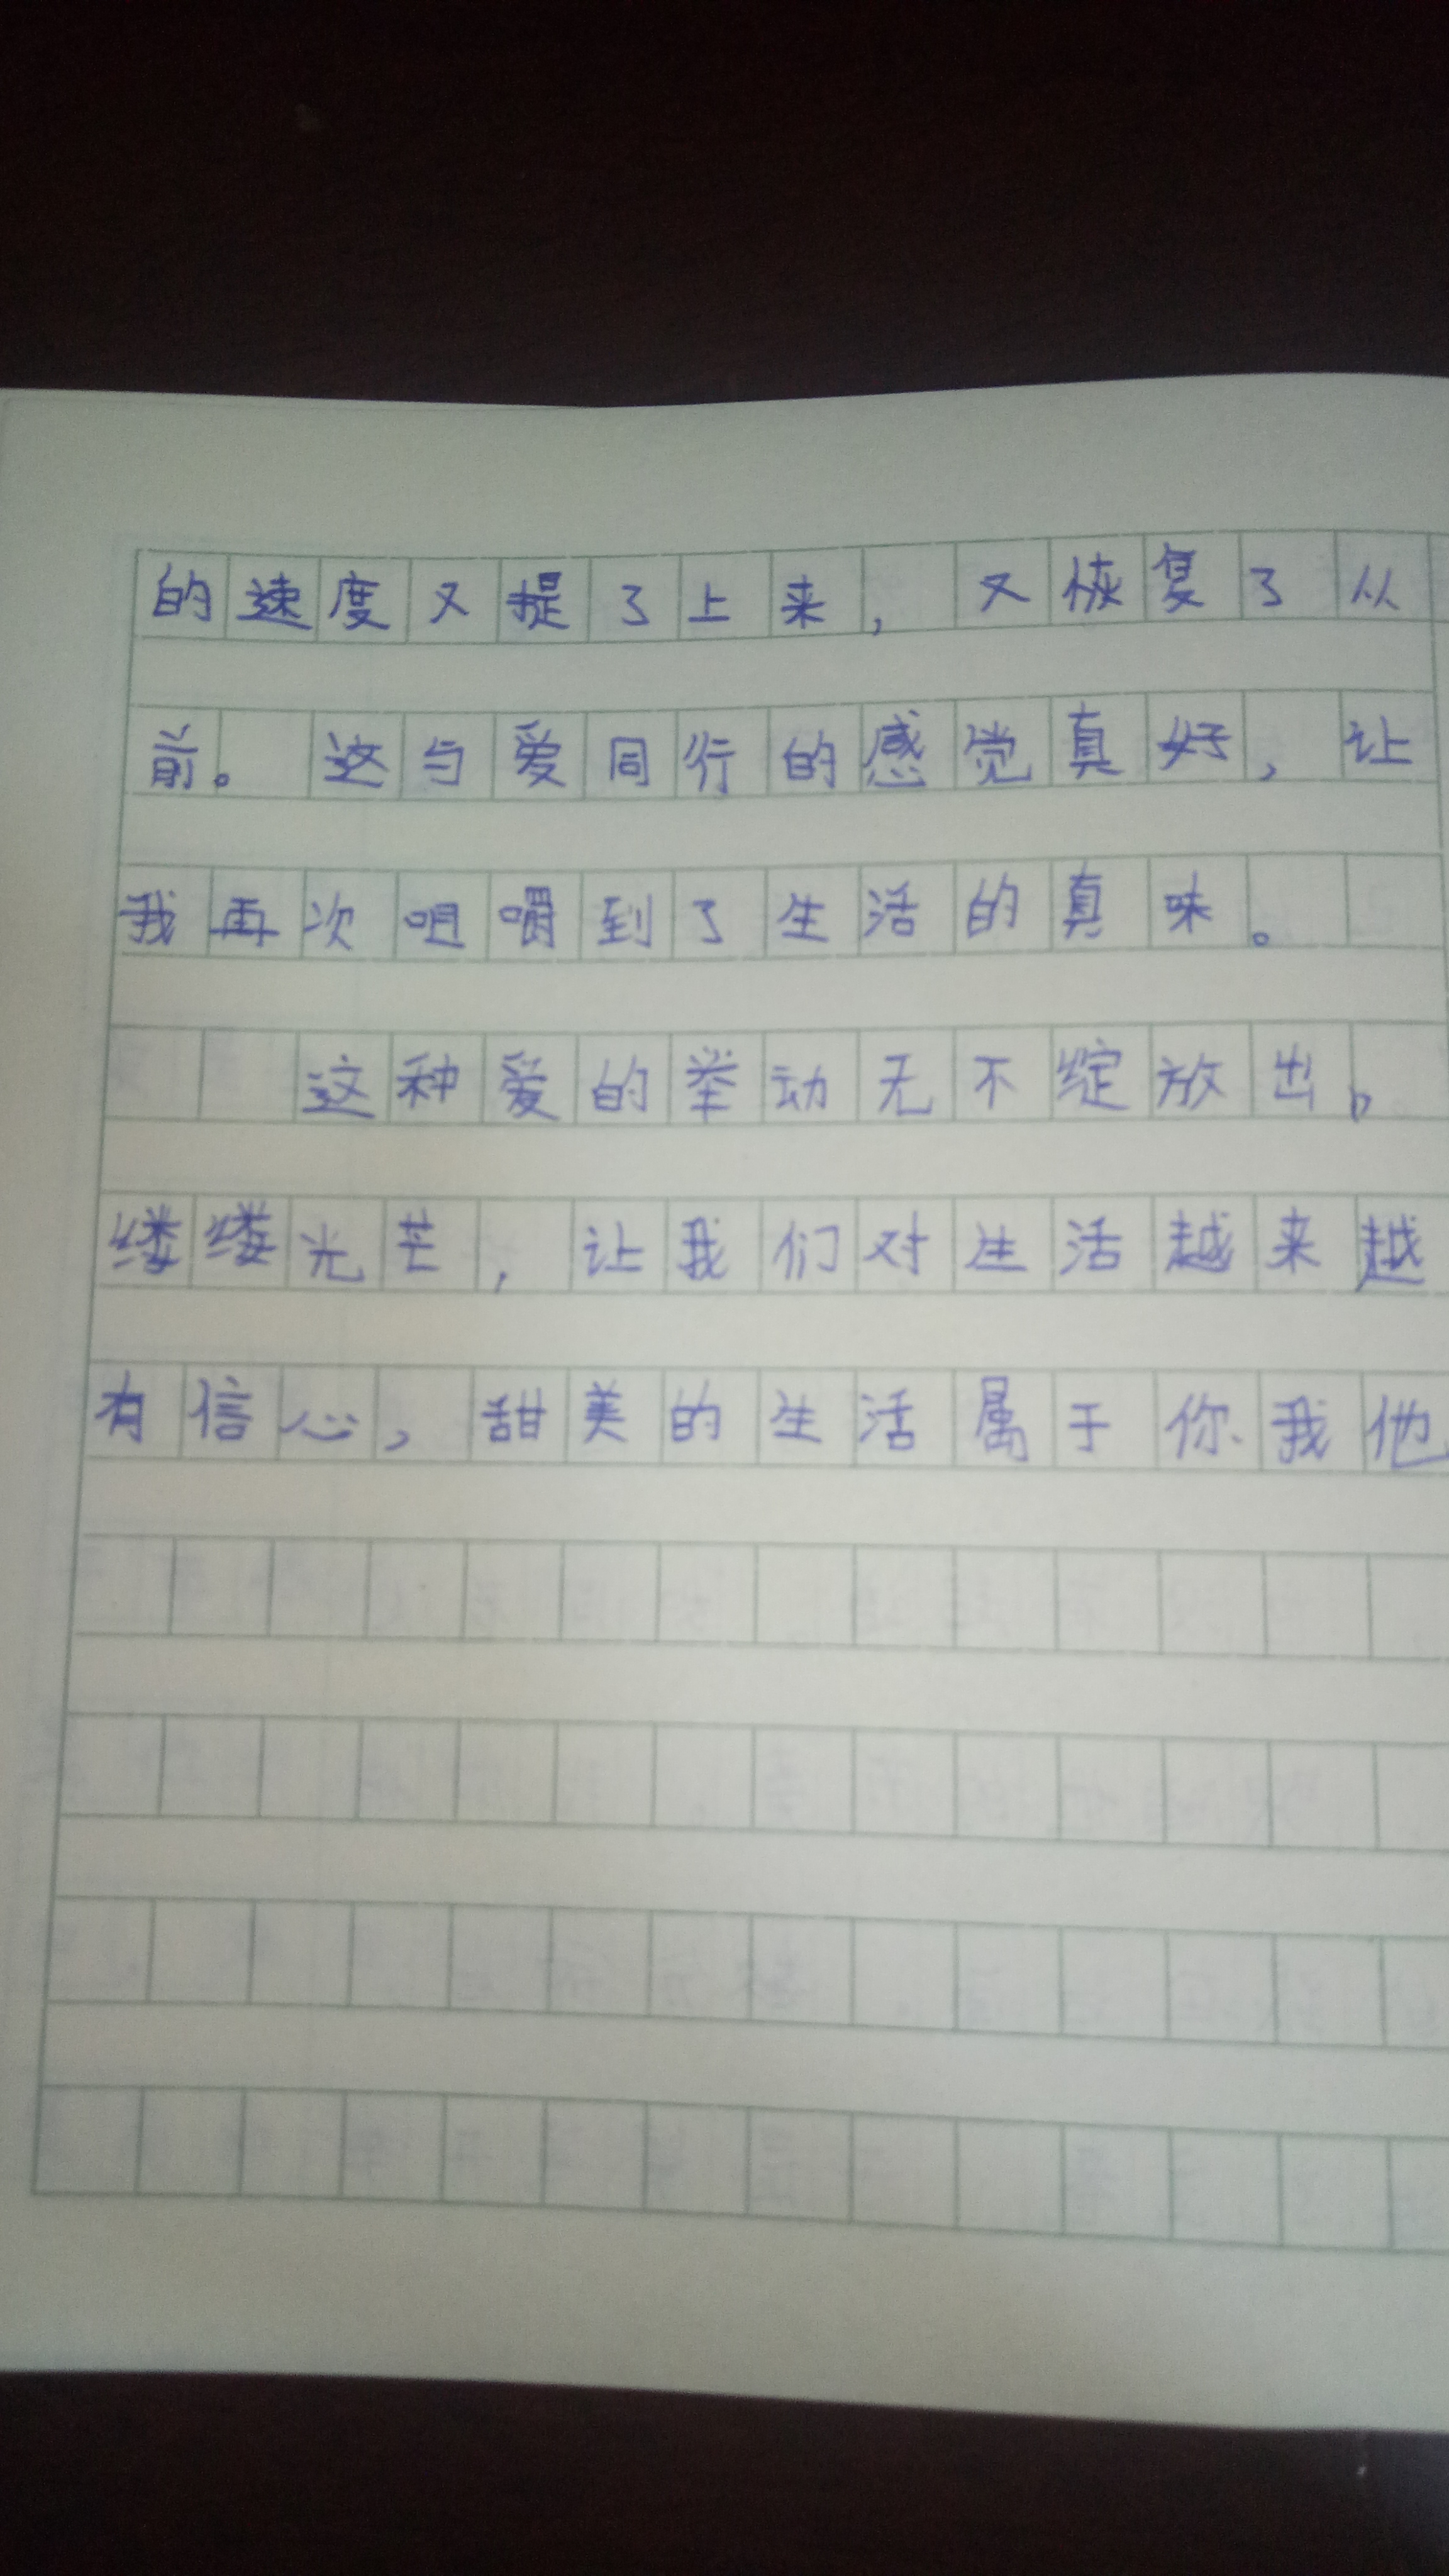 的速度又提了上来，又恢复了从
前。这与爱同行的感觉真好，让
我再次咀嚼到了生活的真味。
这种爱的举动无不绽放出。
缕缕光芒，让我们对生活越来越
有信心，甜美的生活属于你、我他